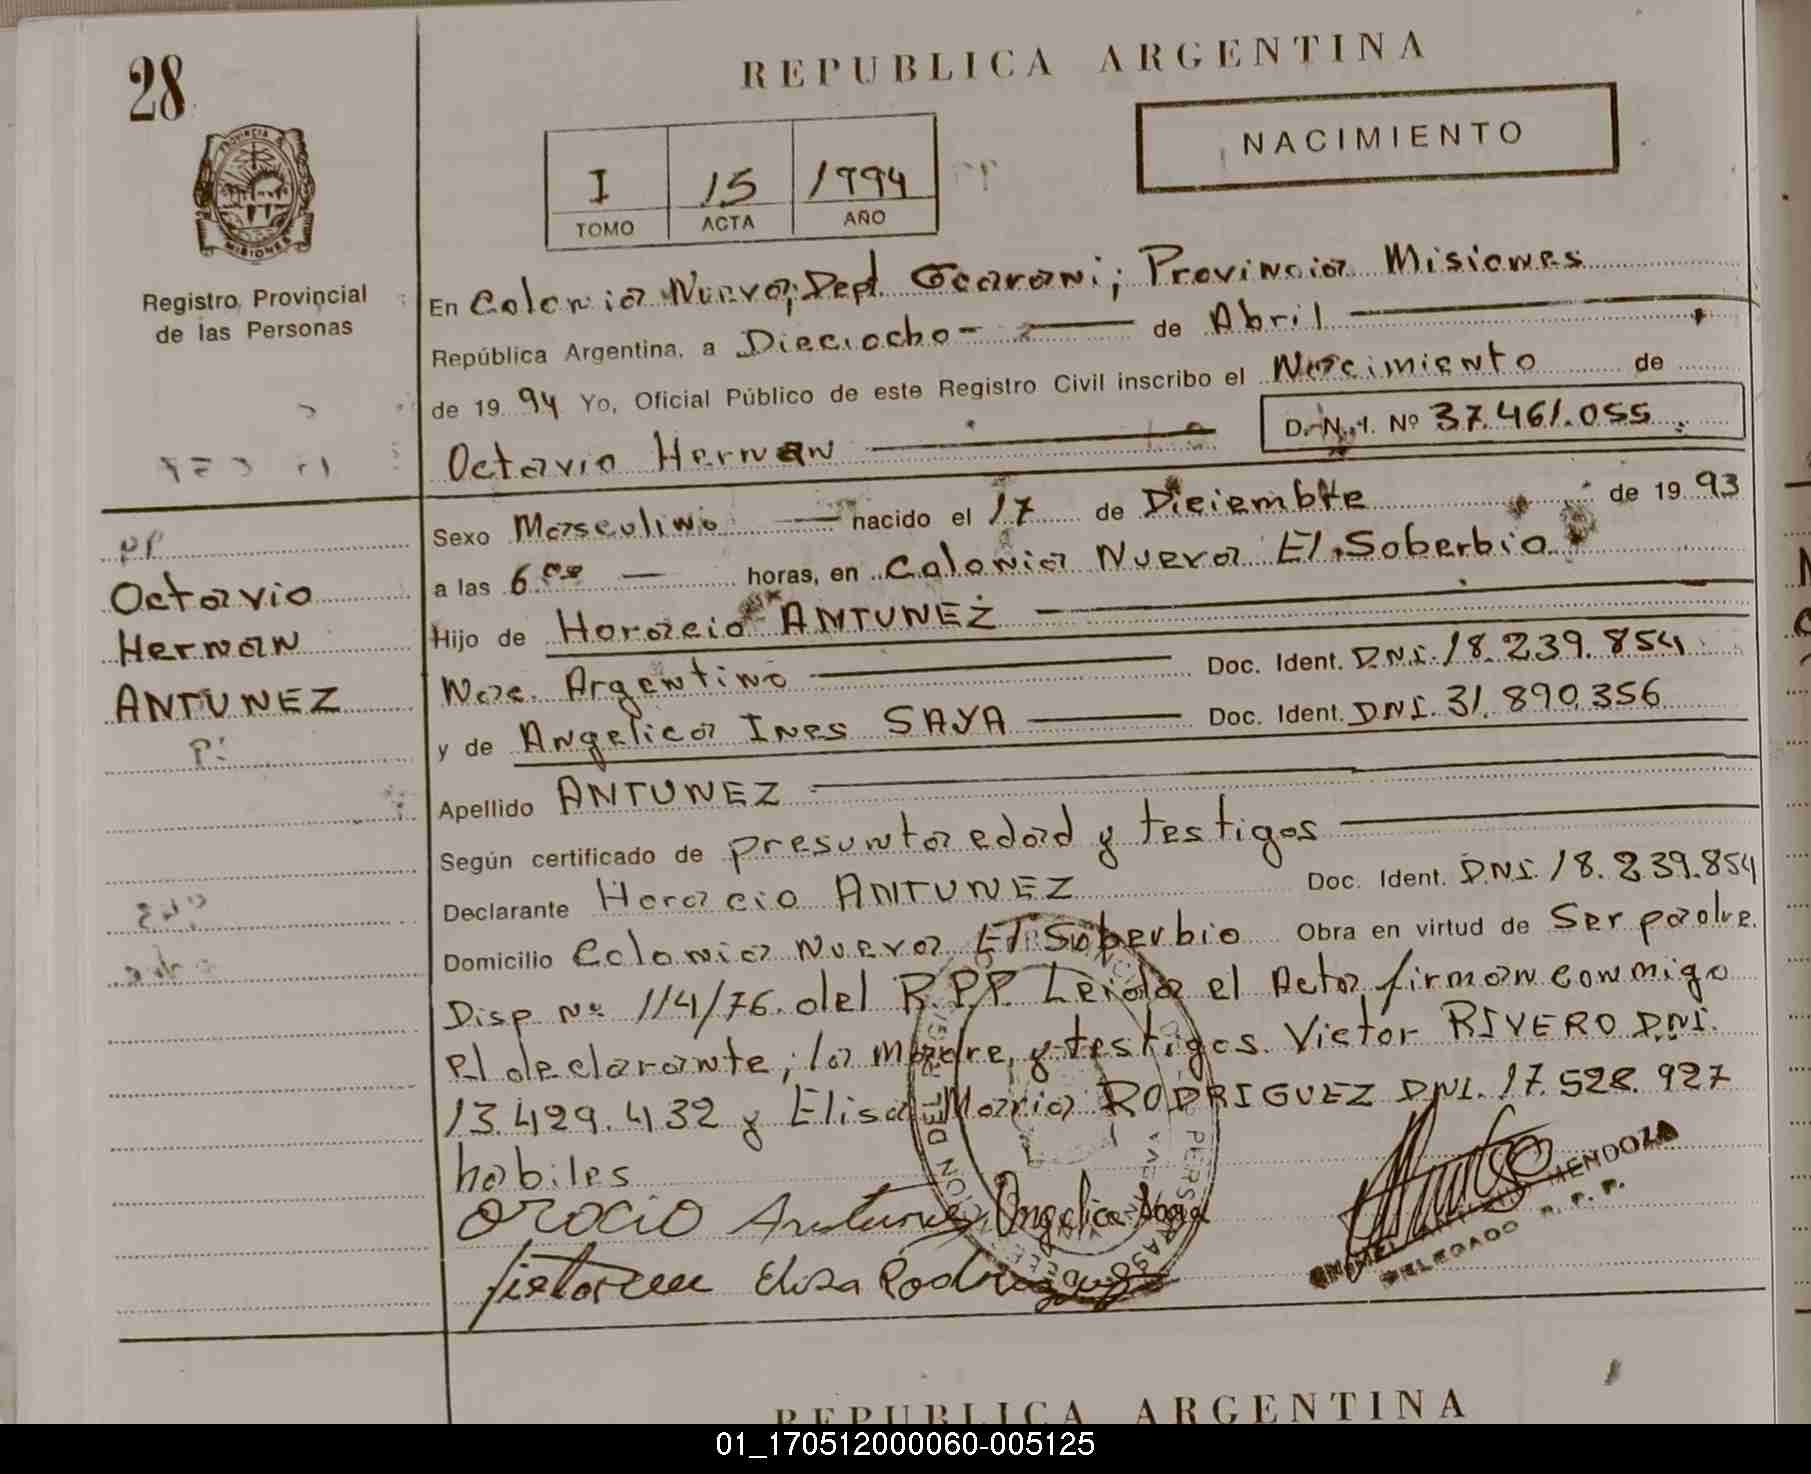 28
REPUBLICA ARGENTINA
NACIMIENTO
PROVINCIA
MISIONES
I 15 1994
TOMO ACTA AÑO
Registro Provincial
de las Personas
En Colonia Nueva; Dept. Gcarani; Provincia Misiones
República Argentina, a Dieciocho - de Abril
de 19 94 Yo, Oficial Público de este Registro Civil inscribo el Nacimiento de
Octavio Hernan D.N.I. Nº 37.461.055
Sexo Masculino nacido el 17 de Diciembre de 19 93
a las 6 00 horas, en Colonia Nueva El Soberbio
Hijo de Horacio ANTUNEZ
Nac. Argentino Doc. Ident. DNI. 18.239.854
y de Angelica Ines SAYA Doc. Ident. DNI. 31.890.356
Apellido ANTUNEZ
Según certificado de presunta edad y testigos
Declarante Horacio ANTUNEZ Doc. Ident. DNI. 18.239.854
Domicilio Colonia Nueva El Soberbio Obra en virtud de Ser padre.
Disp Nº 114/76. del R.P.P. Leida el Acta, firman conmigo
el declarante; la madre, y testigos. Victor RIVERO DNI.
13.429.432 y Elisa Maria RODRIGUEZ DNI. 17.528.927
habiles
PP
Octavio
Hernan
ANTUNEZ
OROCIO Antunez Angelica Saya
Elisa Rodriguez
MENDOZA
DELEGADO R. P. P.
REPUBLICA ARGENTINA
01_170512000060-005125